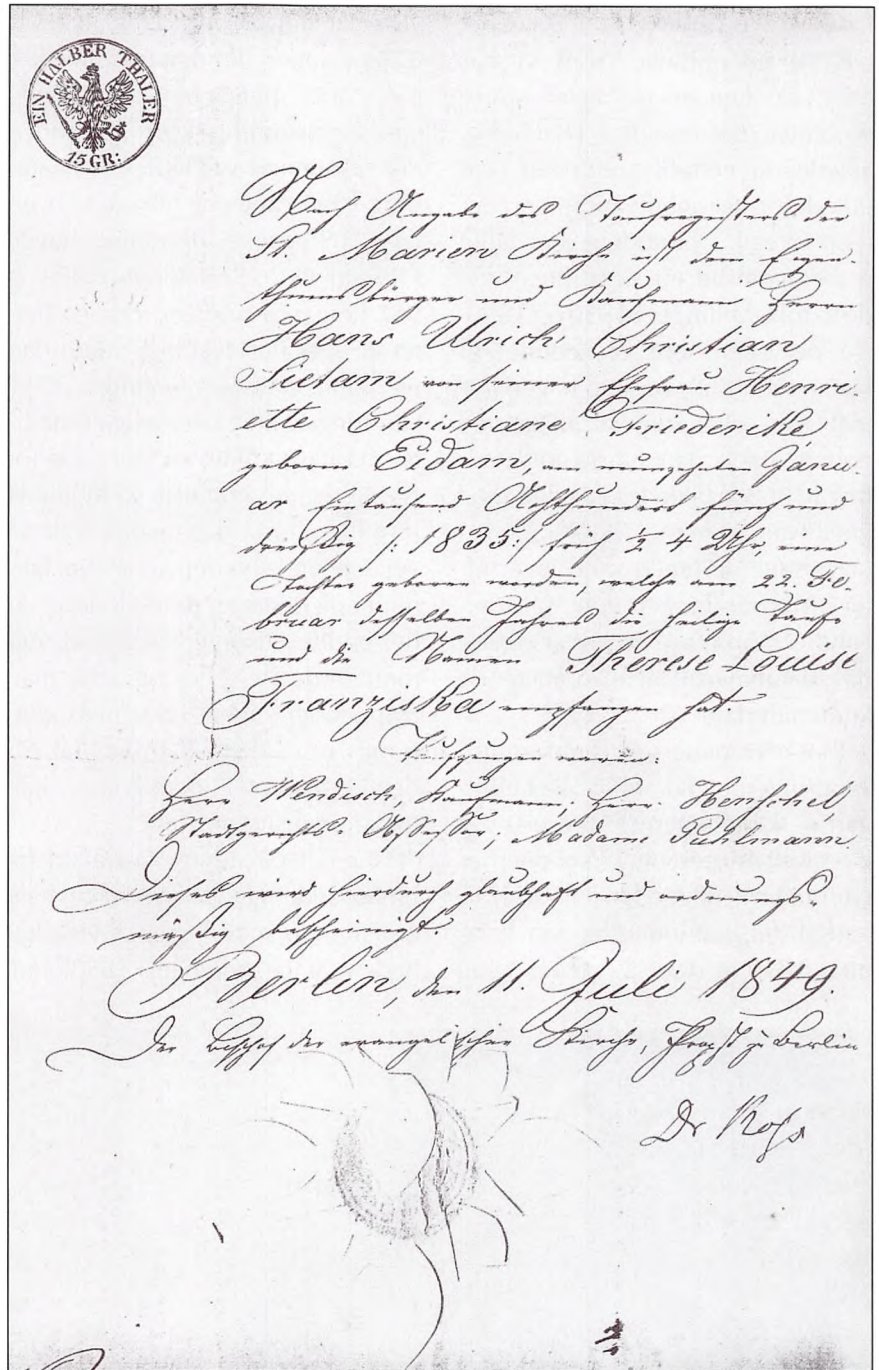 EIN HALBER THALER
15 GR:
Nach Angabe des Taufregisters der
St. Marien Kirche ist dem Eigen
thumsbürger und Kaufmann Herrn
Hans Ulrich Christian
von seiner Ehefrau Henri
ette Christiane Friedericke,
geborne Eidam, am Janu
ar Eintausend Achthundert fünf und
dreißig /: 1835 :/ früh ½ 4 Uhr, eine
Tochter geboren worden, welche am 22. Fe
bruar desselben Jahres die heilige Taufe
und die Namen Therese Louise
Franziska empfangen hat.
Taufzeugen waren:
Herr Windisch, Kaufmann, Herr Henschel
Stadtgerichts Assessor, Madame Puhlmann.
Dieses wird hierdurch glaubhaft und ordnungs
mäßig bescheinigt.
Berlin, den 11. Juli 1849.
Der Bischof der evangelischen Kirche, Propst zu Berlin
Dr